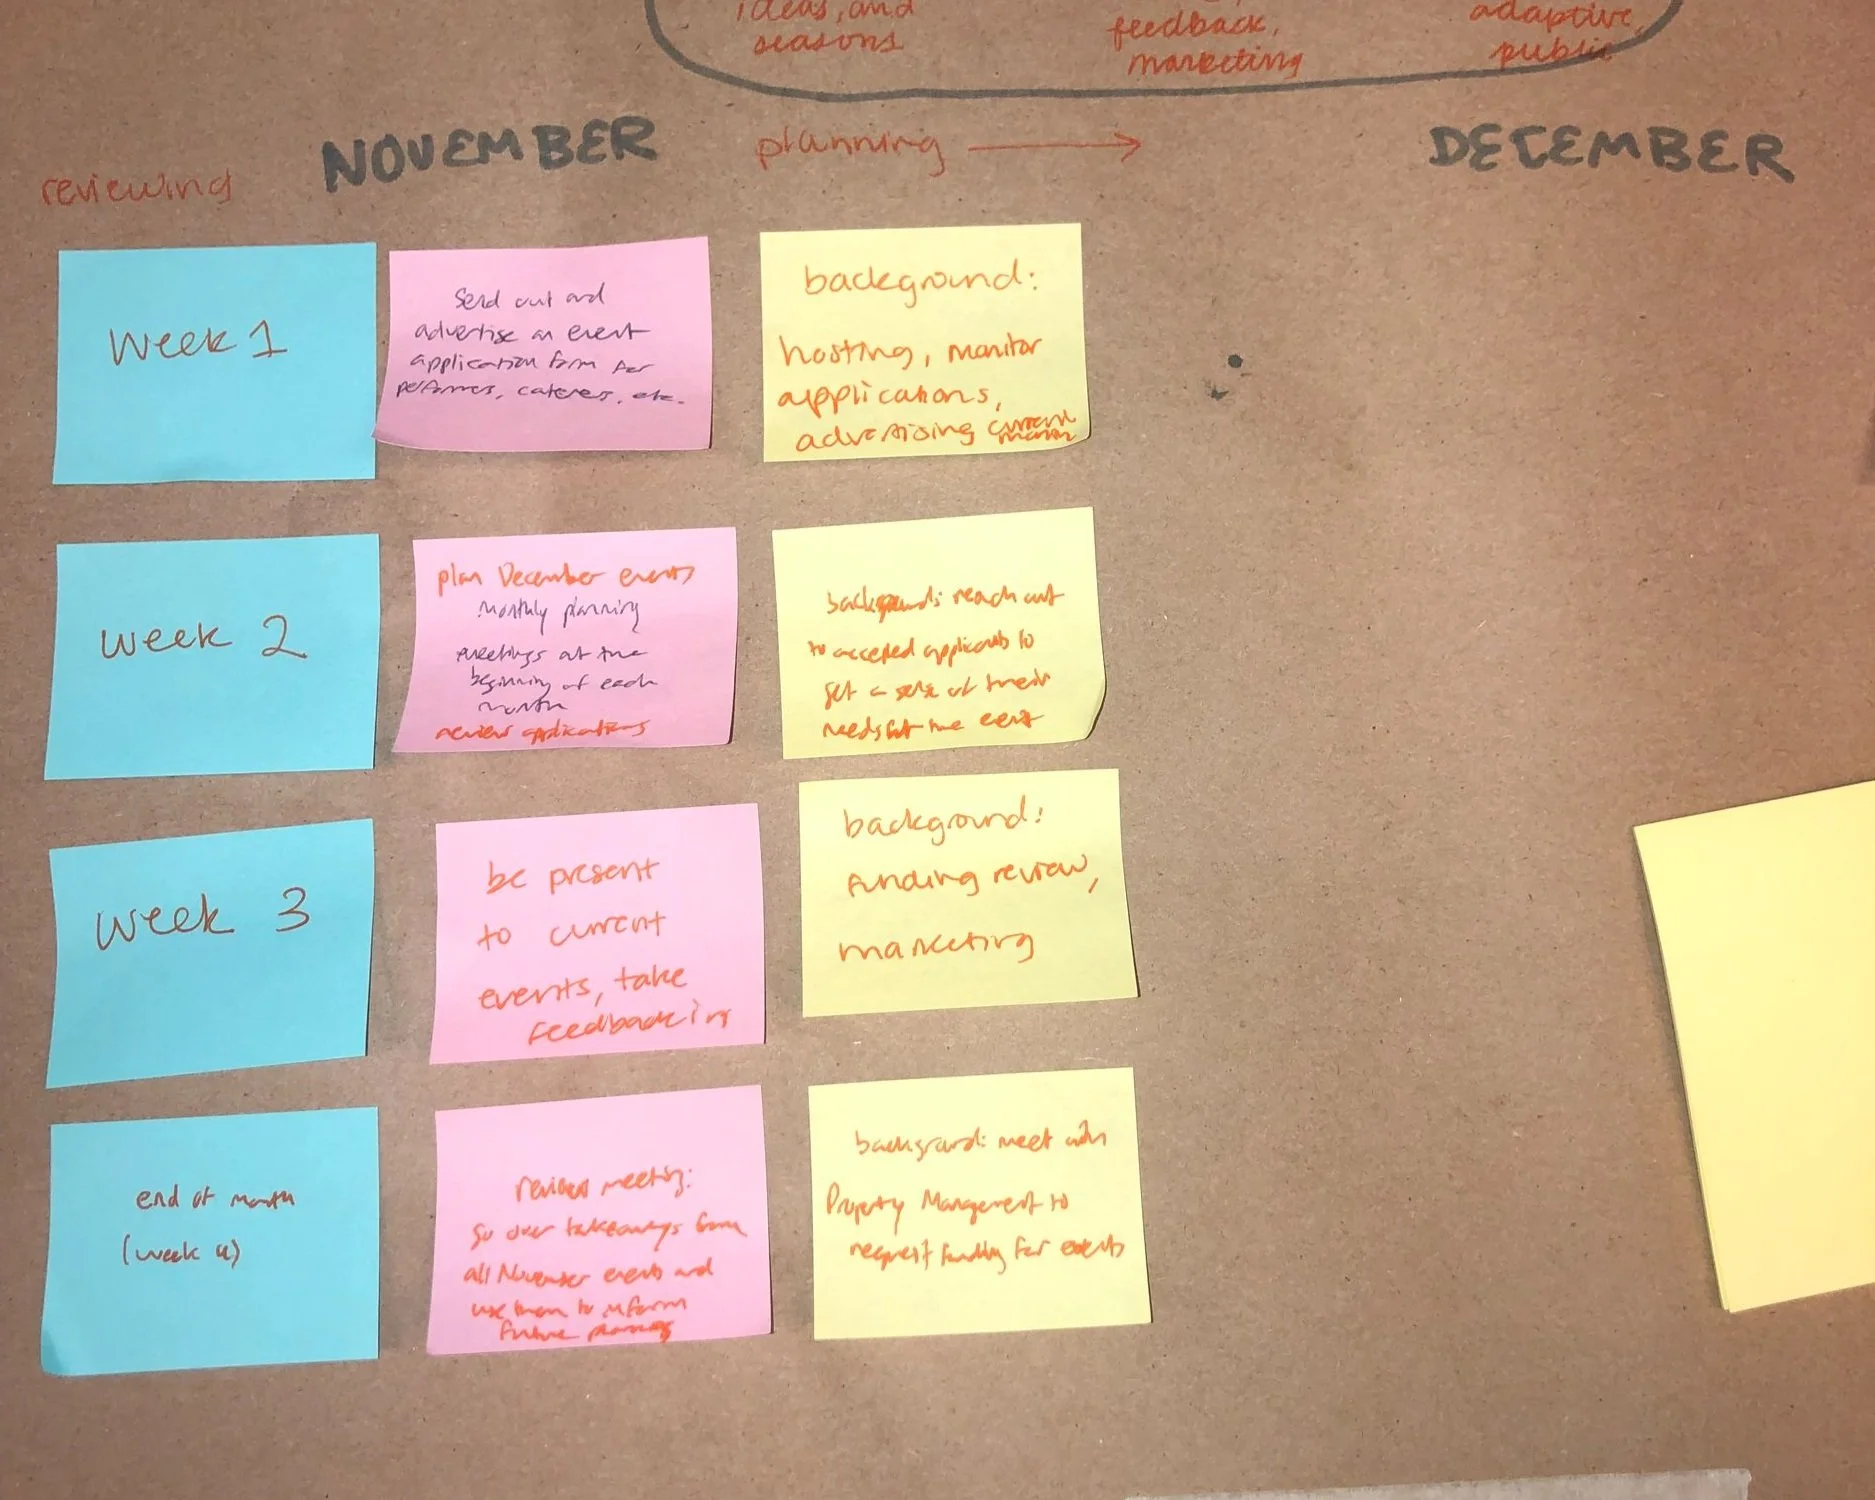 ideas, and
seasons
feedback,
marketing
adaptive,
public
reviewing
NOVEMBER
planning
DECEMBER
Week 1
Send out and
advertise an event
application form for
performers, caterers, etc.
background:
hosting, monitor
applications,
advertising current
month
week 2
plan December events
Monthly planning
meetings at the
beginning of each
month
review applications
background: reach out
to accepted applicants to
get a sense of their
needs for the event
week 3
be present
to current
events, take
feedback in
background:
funding review,
marketing
end of month
(week 4)
review meeting:
go over takeaways from
all November events and
use them to inform
future planning
background: meet with
Property Management to
request funding for events